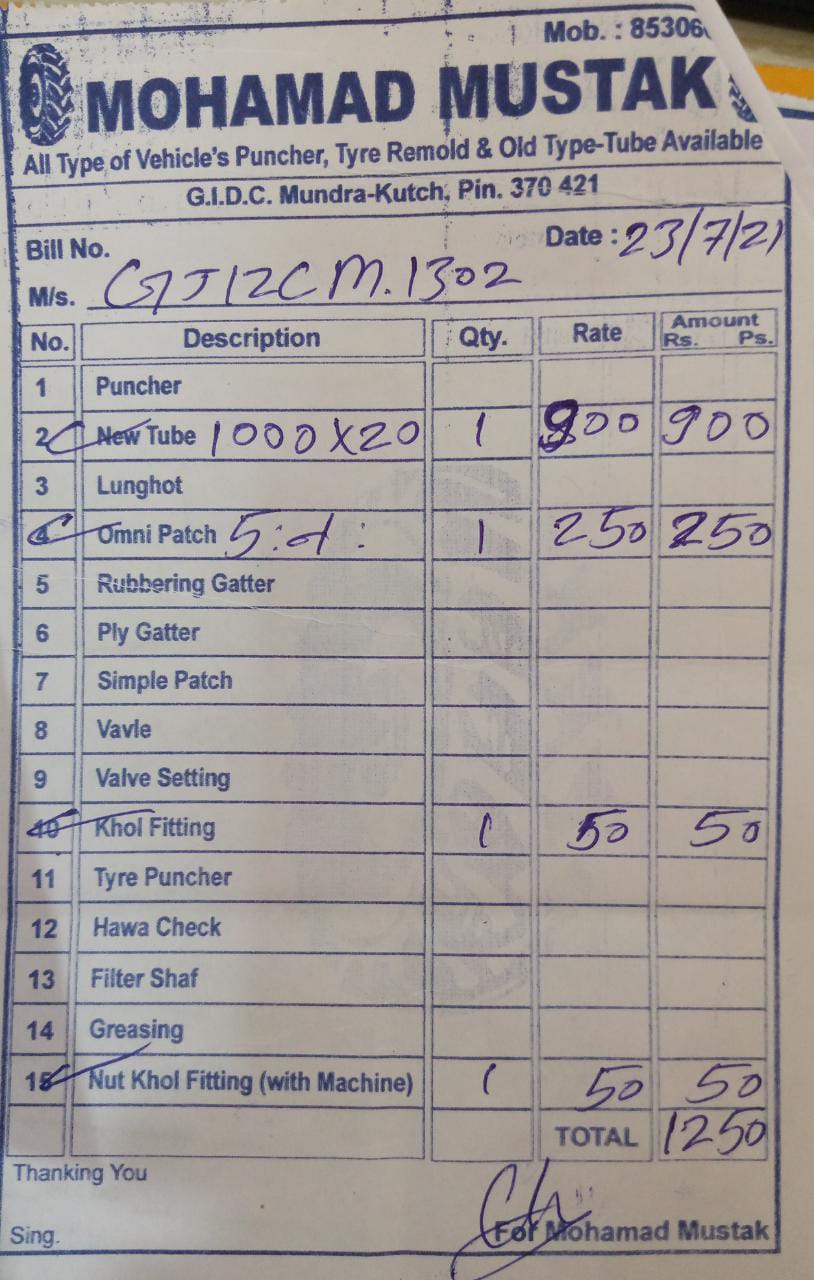 Mob. : 85306
MOHAMAD MUSTAK
All Type of Vehicle's Puncher, Tyre Remold & Old Type-Tube Available
G.I.D.C. Mundra-Kutch, Pin. 370 421
Bill No. Date : 23/7/21
M/s. GJ12CM.1302
No. Description Qty. Rate Amount Rs. Ps.
1 Puncher
2 New Tube 1000X20 1 900 900
3 Lunghot
4 Omni Patch 1 250 250
5 Rubbering Gatter
6 Ply Gatter
7 Simple Patch
8 Vavle
9 Valve Setting
10 Khol Fitting 1 50 50
11 Tyre Puncher
12 Hawa Check
13 Filter Shaf
14 Greasing
15 Nut Khol Fitting (with Machine) 1 50 50
TOTAL 1250
Thanking You
Sing. For Mohamad Mustak